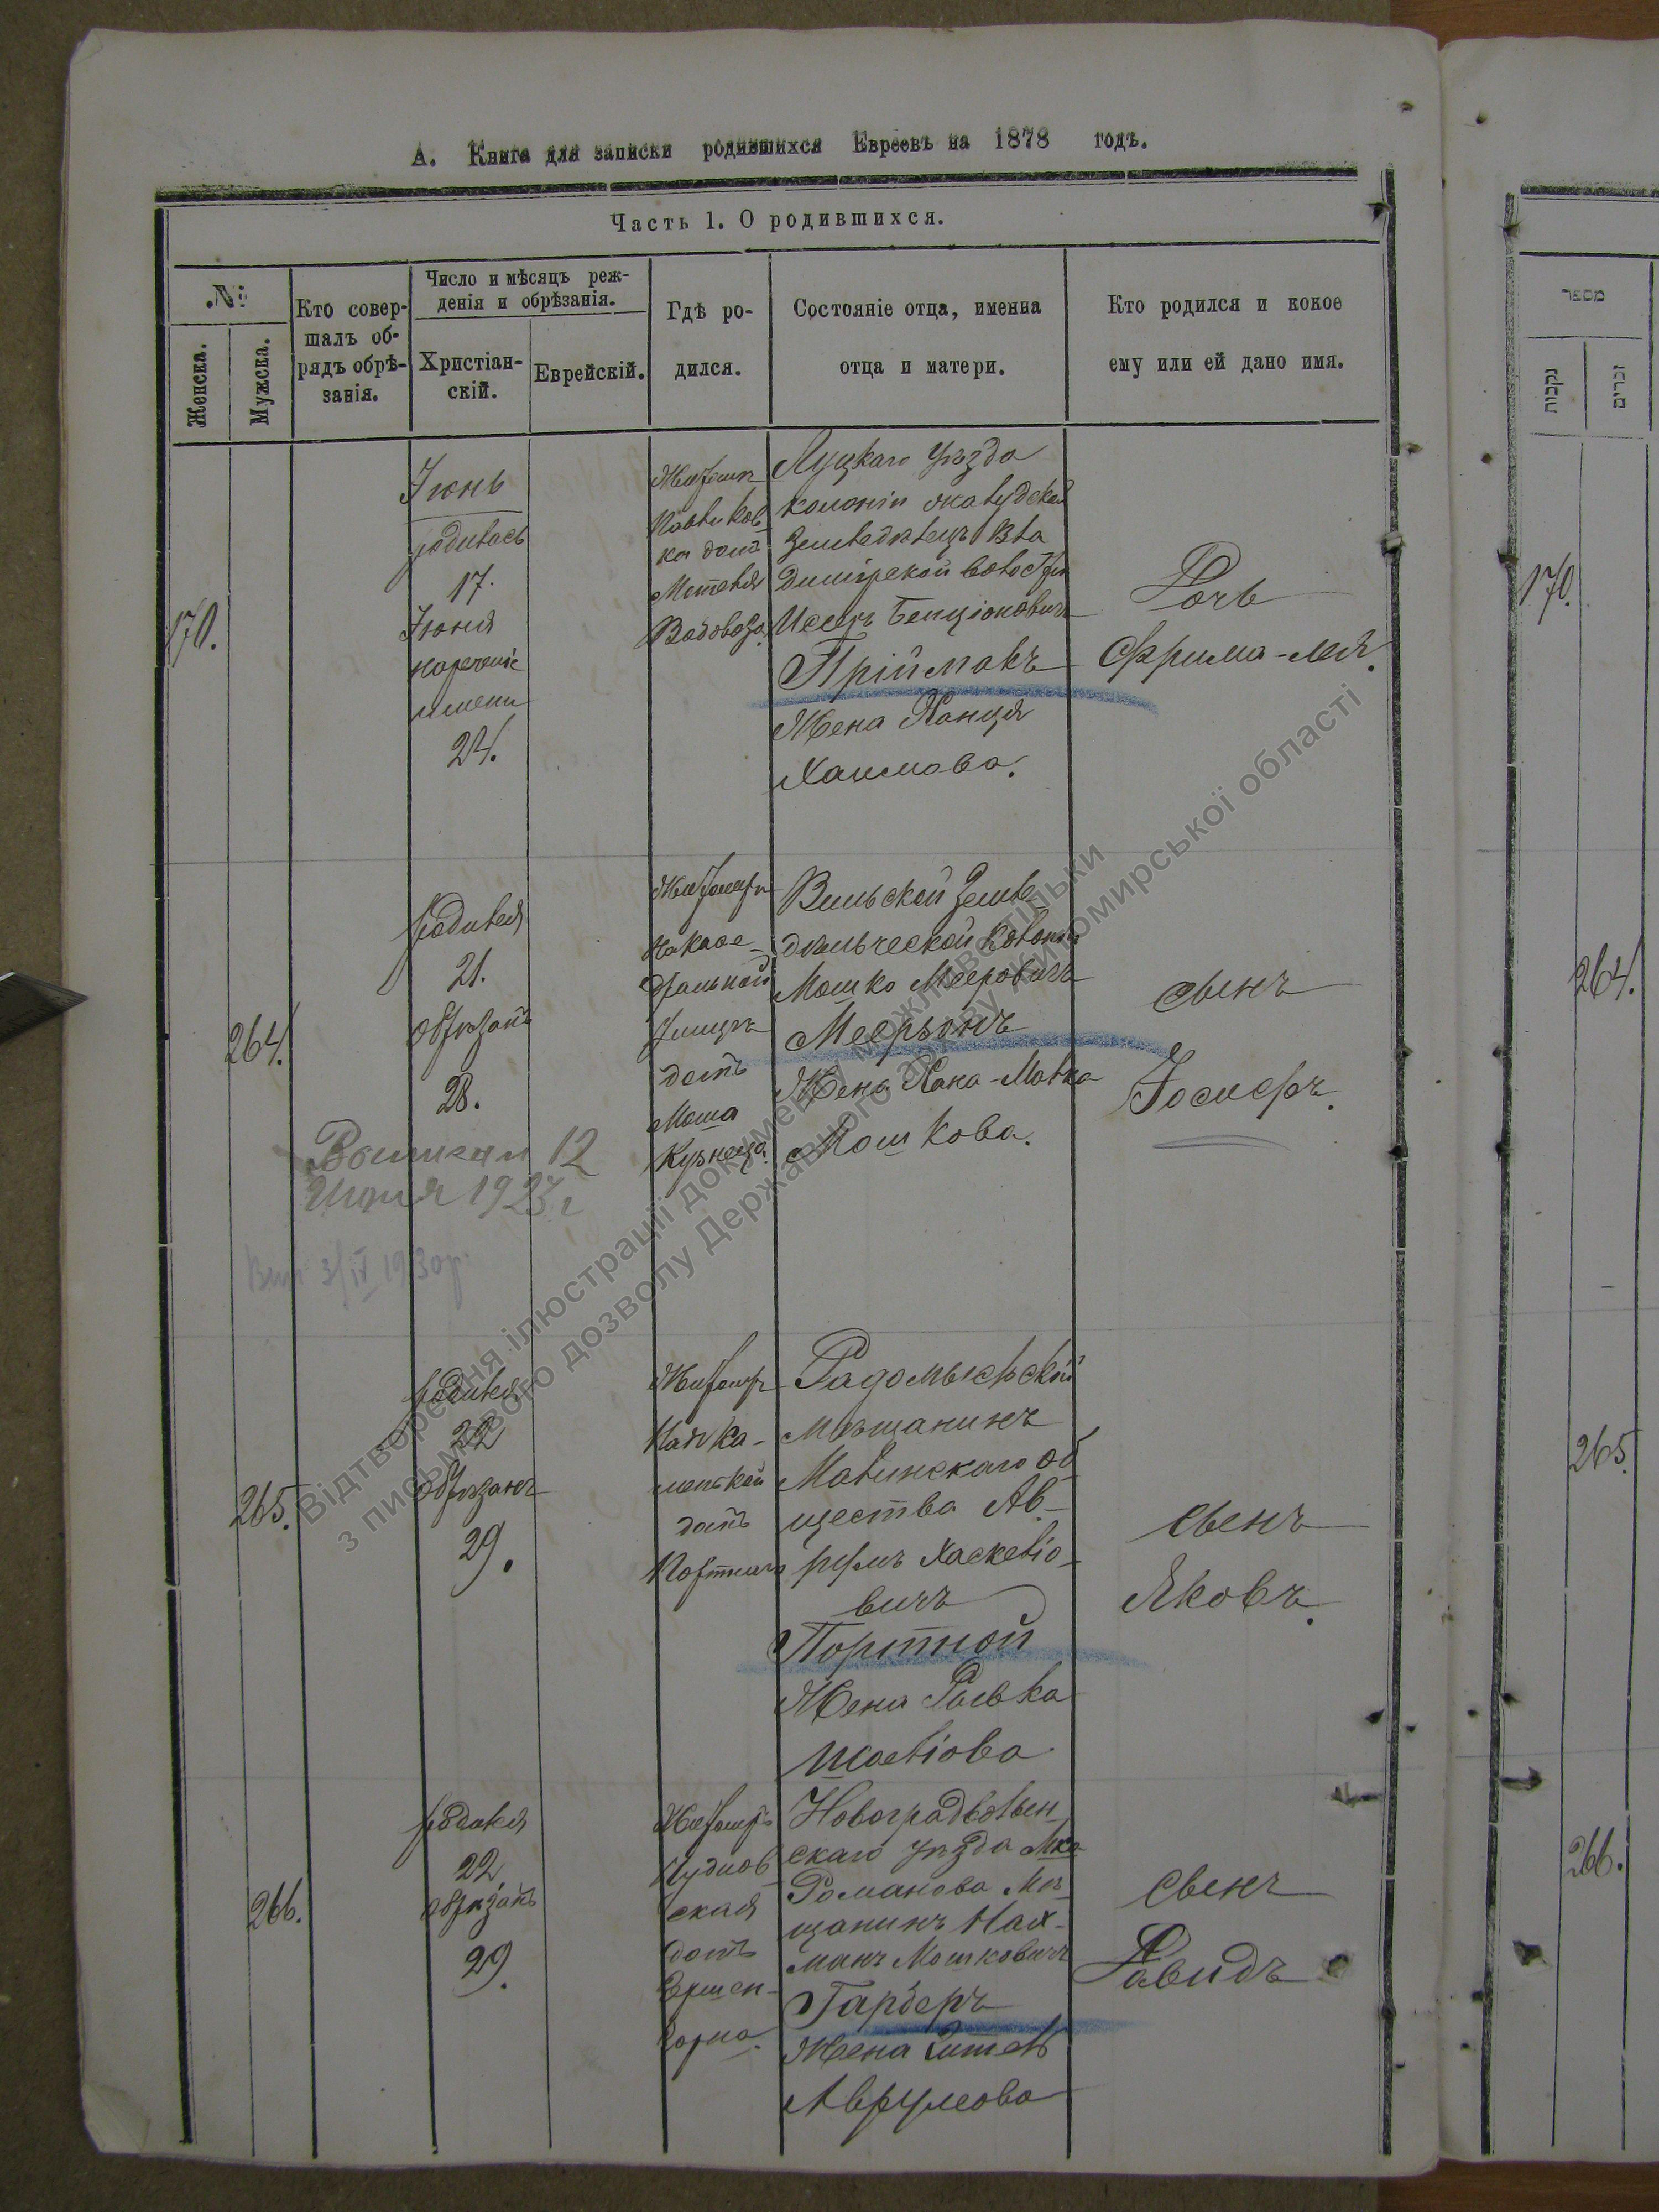 А. Книга для записки родившихся Евреевъ на 1878 годъ.
Часть 1. О родившихся.
№
Женска.
Мужска.
Кто совер-
шалъ об-
рядъ обрѣ-
занія.
Число и мѣсяцъ реж-
денія и обрѣзанія.
Христіан-
скій.
Еврейскій.
Гдѣ ро-
дился.
Состояніе отца, именна
отца и матери.
Кто родился и кокое
ему или ей дано имя.
170.
Іюнь
родилась
17.
Іюня
нареченіе
имени
24.
Житомир
Павликов-
ка домъ
Водовоза.
Луцкаго Уѣзда
колоніи
Земледѣлецъ Вла
димірской волости
Иссеръ Бенціоновичъ
Пріймакъ
Жена Ханця
Хаимова.
Дочь
Фрима-Лея.
264.
родился
21.
обрѣзанъ
28.
Житомир
на Каѳе-
дральной
улицѣ
домъ
Моша
Кузнеца.
Вильской Земле-
дѣльческой Колоніи
Мошко Мееровичъ
Меерзонъ
Жена Хана-Малка
Мошкова.
сынъ
Іосифъ.
12
Июля 192
3/IV 1930 р.
265.
родился
22
обрѣзанъ
29.
Житомир
Домъ
Портнаго
Радомысльскій
мѣщанинъ
Малинскаго об
щества Ав-
румъ Хаскеліо-
вичъ
Портной
Жена Рывка
Шаеліова
сынъ
Яковъ.
266.
родился
22
обрѣзанъ
29.
Житомиръ
Чуднов-
ская
домъ
Новоградволын-
скаго уѣзда Мка
Романова Мѣ-
щанинъ Нах-
манъ Мошковичъ
Гарберъ
Жена
Аврумова
сынъ
Давидъ
מספר
נקבות
זכרים
170.
264.
265.
266.
Відтворення ілюстрації документу можливе тільки
з письмового дозволу Державного архіву Житомирської області